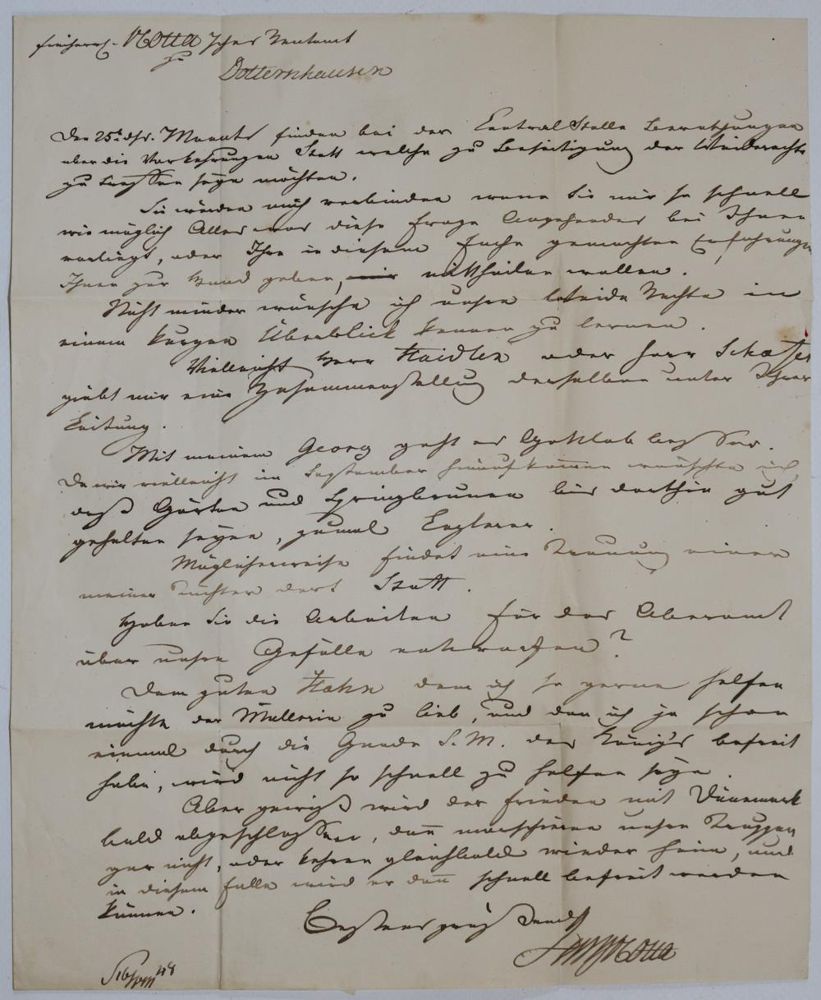 Freiherrl. v Cotta'sches Rentamt
zu
Dotternhausen
Den 25t. ds. Monats finden bei der Central Stelle Berathungen
über die Vorkehrungen Statt welche zu Beseitigung der Weiderechte
zu treffen seyn möchten.
Sie würden mich verbinden wenn Sie mir so schnell
wie möglich Alles was diese Frage Angehendes bei Ihnen
vorliegt, oder Ihre in diesem Fache gemachten Erfahrungen
Ihnen zur Hand geben, mittheilen wollen.
Nicht minder wünsche ich unsere Weide Rechte in
einem kurzen Überblick kennen zu lernen.
Vielleicht Herr Haidlen oder Herr Schäfer
giebt mir eine Zusammenstellung derselben unter Ihrer
Leitung.
Mit meinem Georg geht es Gottlob besser.
Da wir vielleicht im September hinaufkommen wünschte ich,
daß Gärten und Springbrunnen bis dorthin gut
gehalten seyen, zumal Letzterer.
Möglicherweise findet eine Trauung einer
meiner Töchter dort Statt.
Haben Sie die Arbeiten für das Oberamt
über unsere Gefälle entworfen?
Dem guten Hahn dem ich so gerne helfen
möchte der Müllerin zu lieb, und den ich ja schon
einmal durch die Gnade S. M. des Königs befreit
habe, wird nicht so schnell zu helfen seyn.
Aber gewiß wird der Frieden mit Dänemark
bald abgeschlossen, dann marschieren unsere Truppen
gar nicht, oder kehren gleichbald wieder heim, und
in diesem Falle wird er dann schnell befreit werden
können.
Bestens grüßend
Cotta